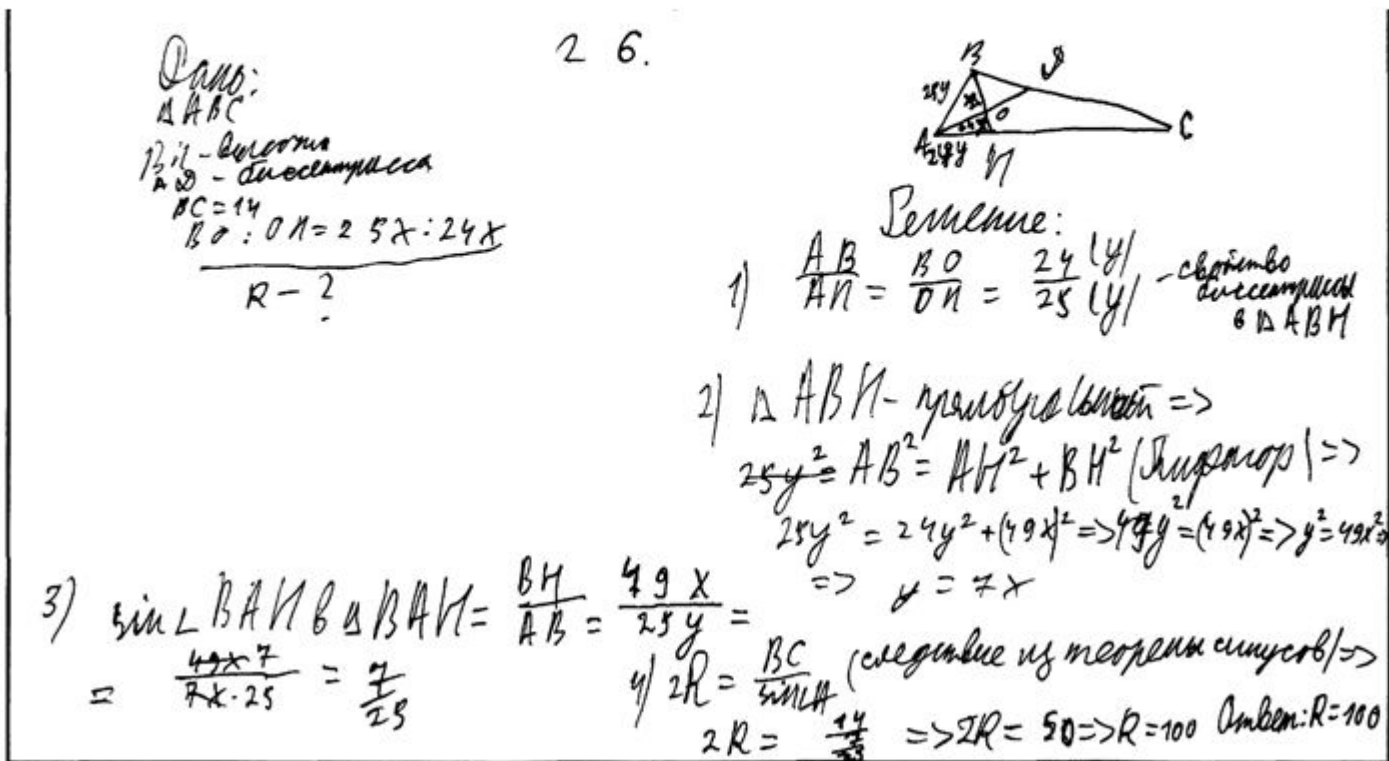 26.
Дано:
△ABC
BH - высота
AD - биссектрисса
BC = 14
BO : OH = 25x : 24x
R - ?
B D
25y
O
A C
24y H
Решение:
1) AB/AH = BO/OH = 24 (y)/25 (y) - свойство биссектрисы в △ABH
2) △ABH - прямоугольный =>
25y² = AB² = AH² + BH² (Пифагор) =>
25y² = 24y² + (49x)² => 49y² = (49x)² => y² = 49x² =>
=> y = 7x
3) sin∠BAH в △BAH = BH/AB = 49x/25y =
= 49x 7/7x·25 = 7/25
4) 2R = BC/sin∠A (следствие из теоремы синусов) =>
2R = 14/(7/25) => 2R = 50 => R = 100 Ответ: R = 100